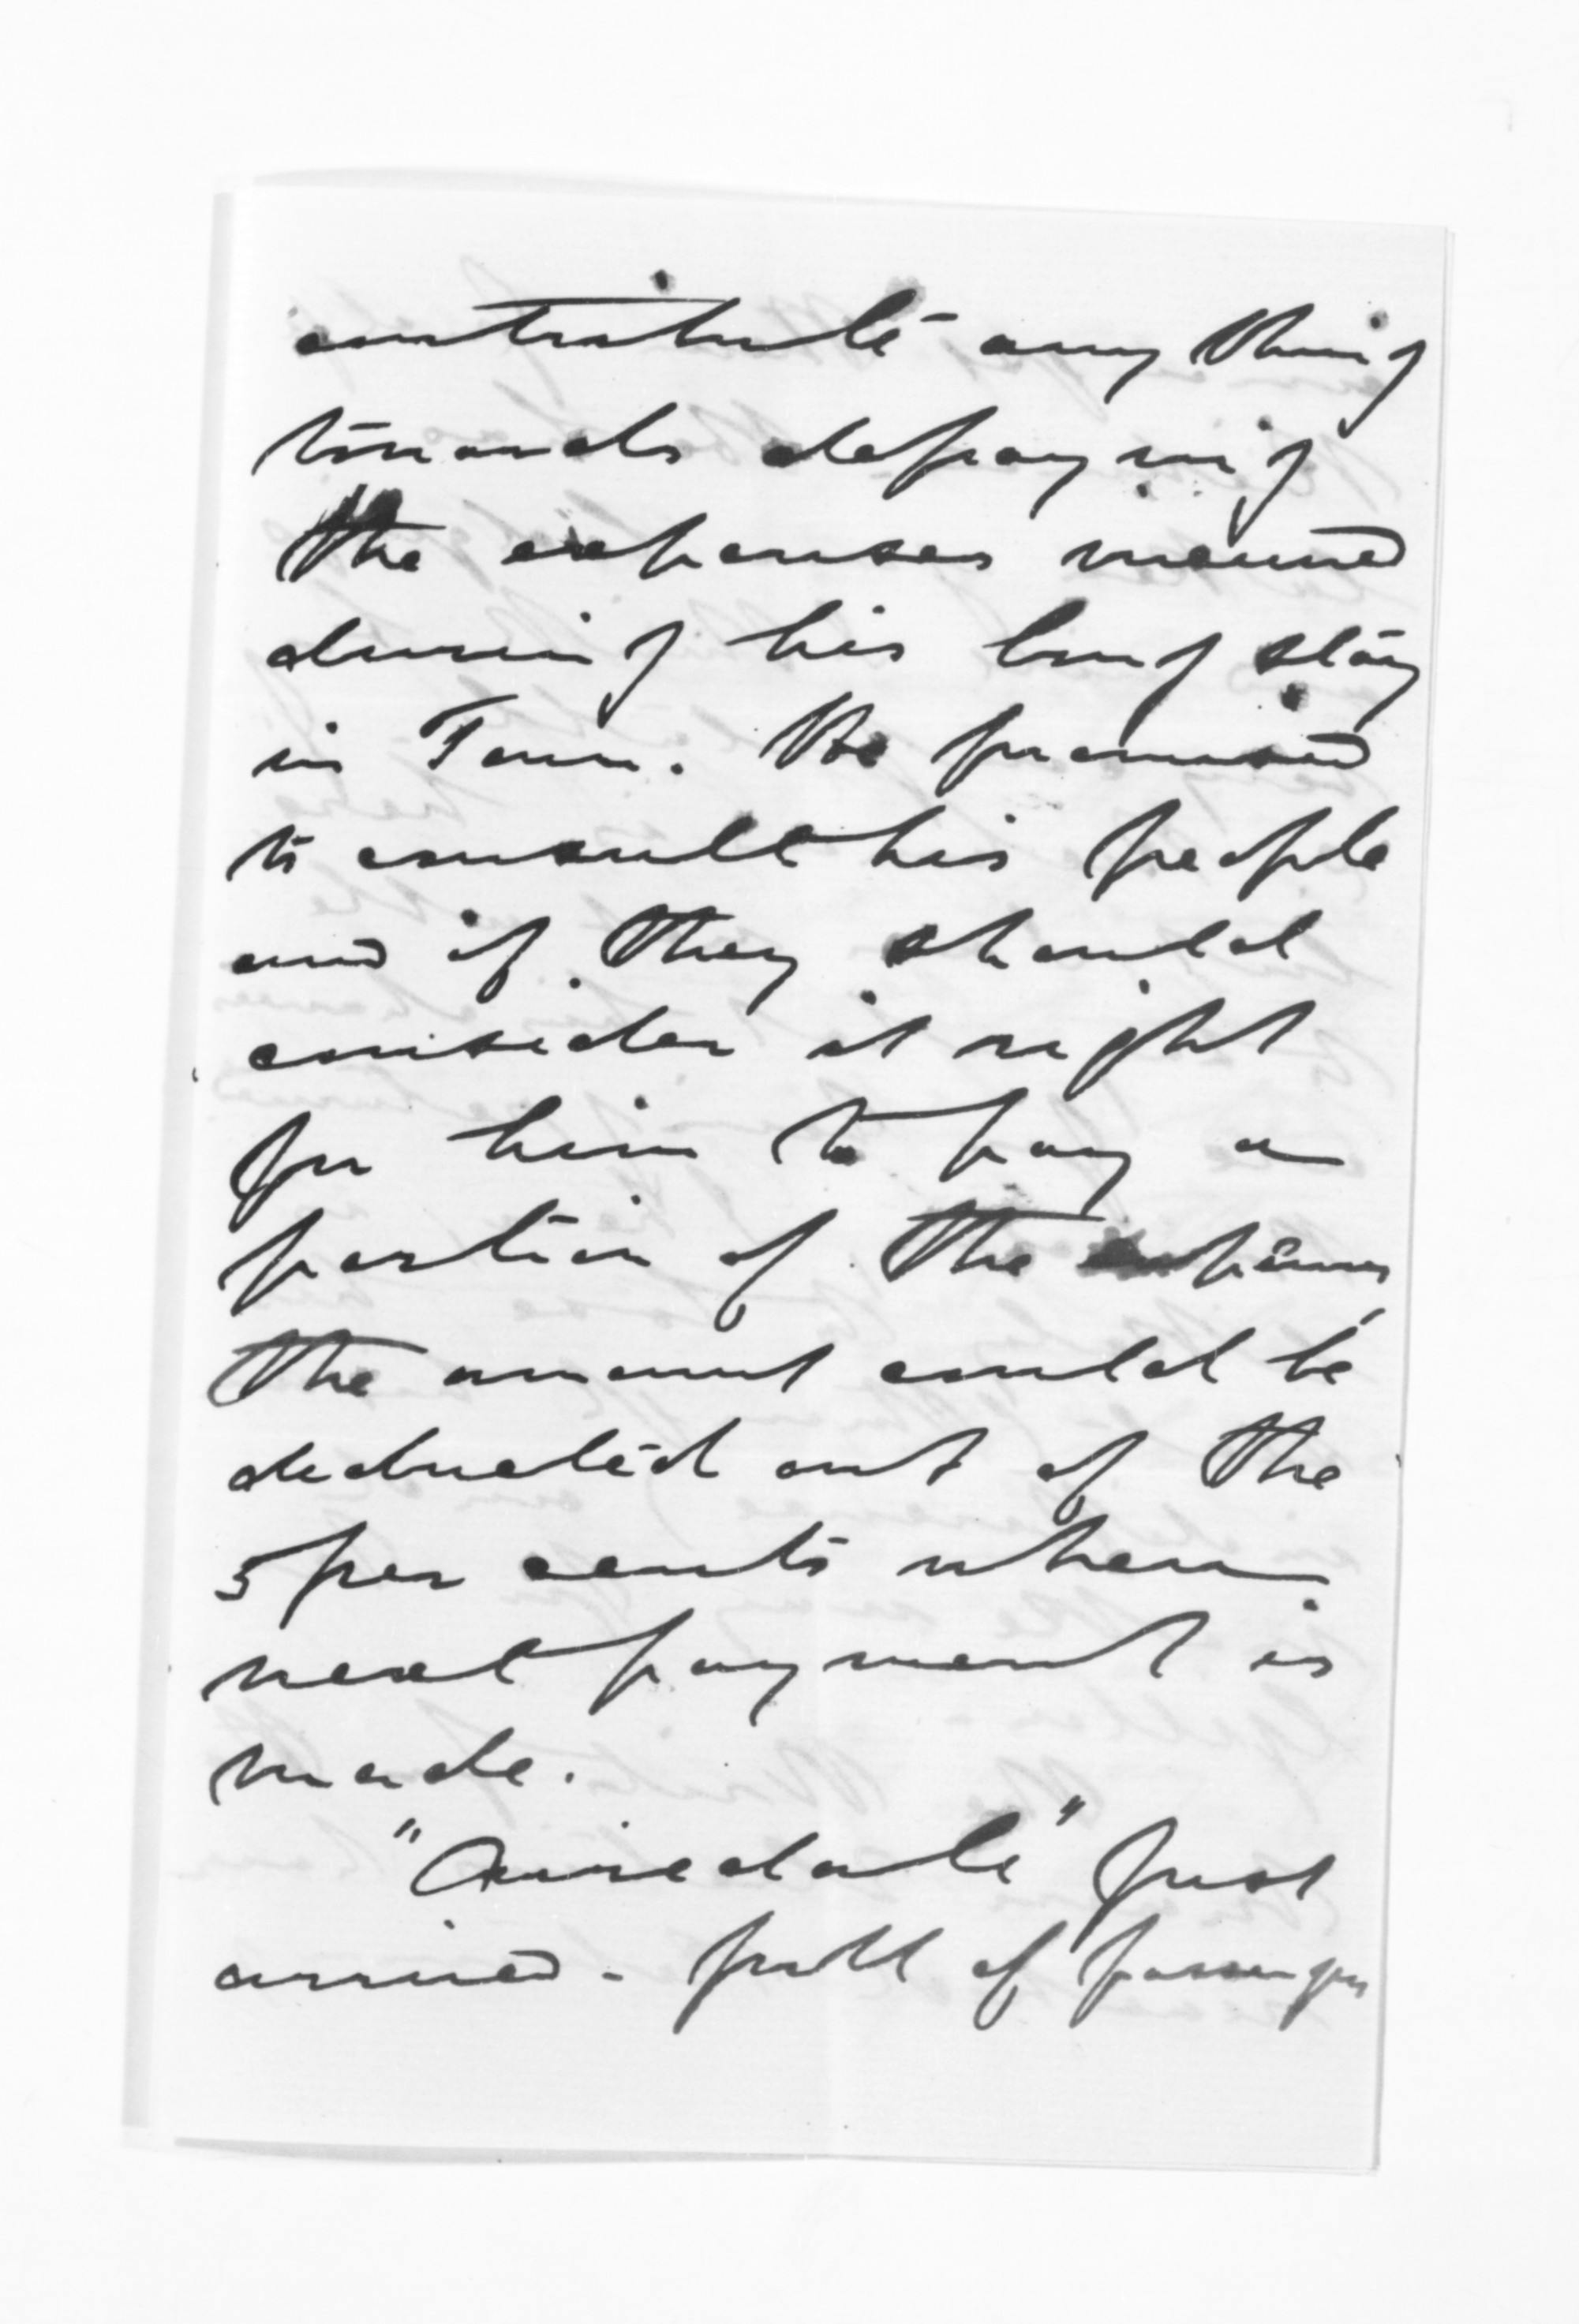 contribute any thing
towards defraying
the expenses incurred
during his long stay
in Town. He promised
to consult his people
and if they should
consider it right
for him to pay a
portion of the expenses,
the amount could be
deducted out of the
5 per cents when
next payment is
made.
"Airedale" just
arrived - full of passengers